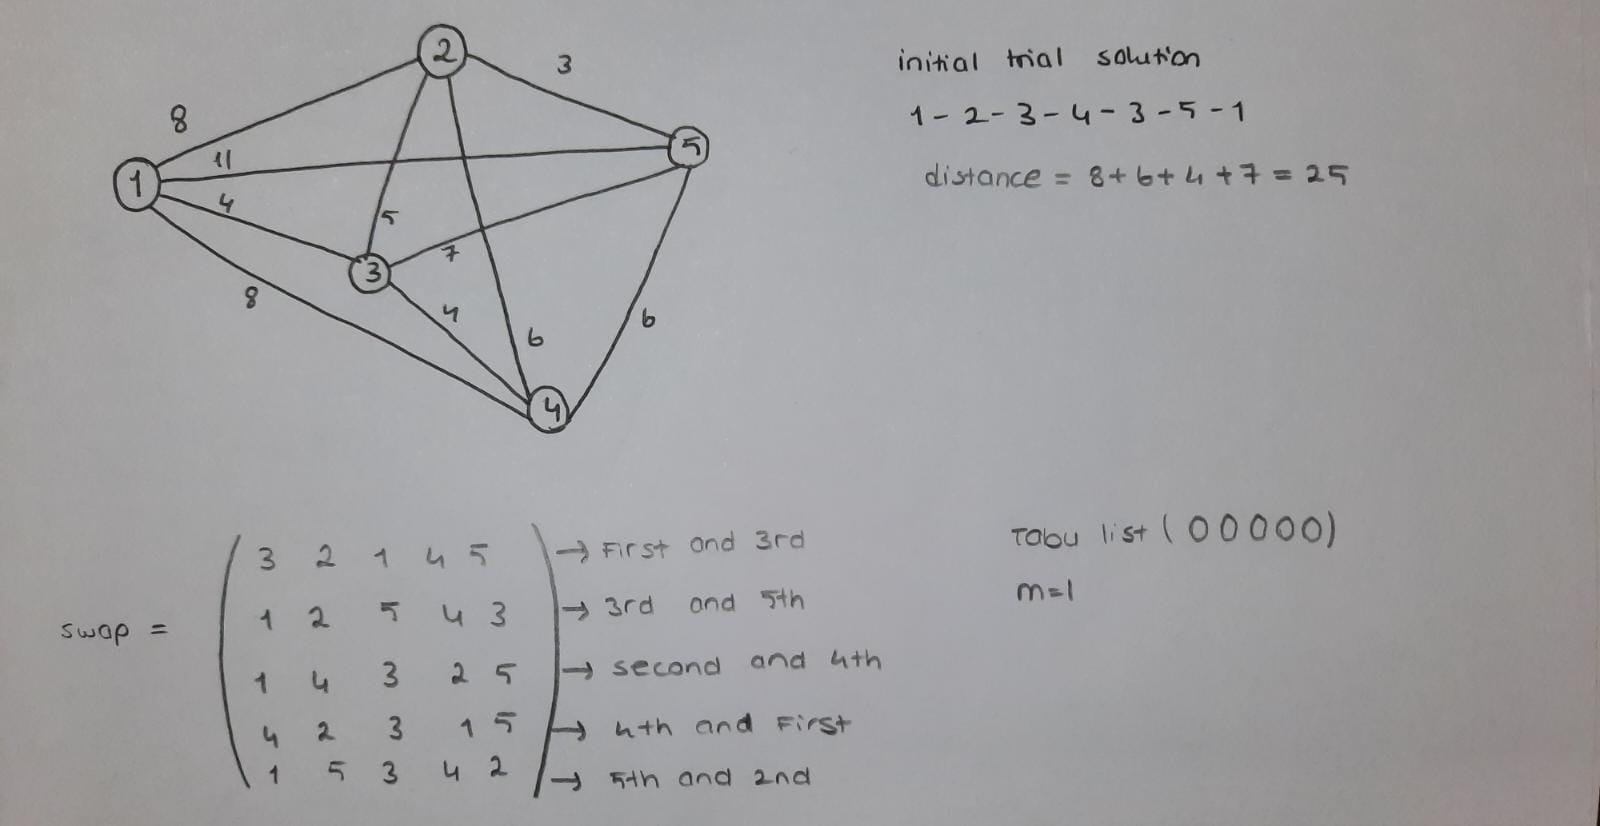 2
3
8
11
5
1
4
5
3
7
8
4
6
6
4
initial trial solution
1 - 2 - 3 - 4 - 3 - 5 - 1
distance = 8 + 6 + 4 + 7 = 25
swap =
3 2 1 4 5 → First and 3rd
1 2 5 4 3 → 3rd and 5th
1 4 3 2 5 → second and 4th
4 2 3 1 5 → 4th and First
1 5 3 4 2 → 5th and 2nd
Tabu list ( 0 0 0 0 0 )
m=1